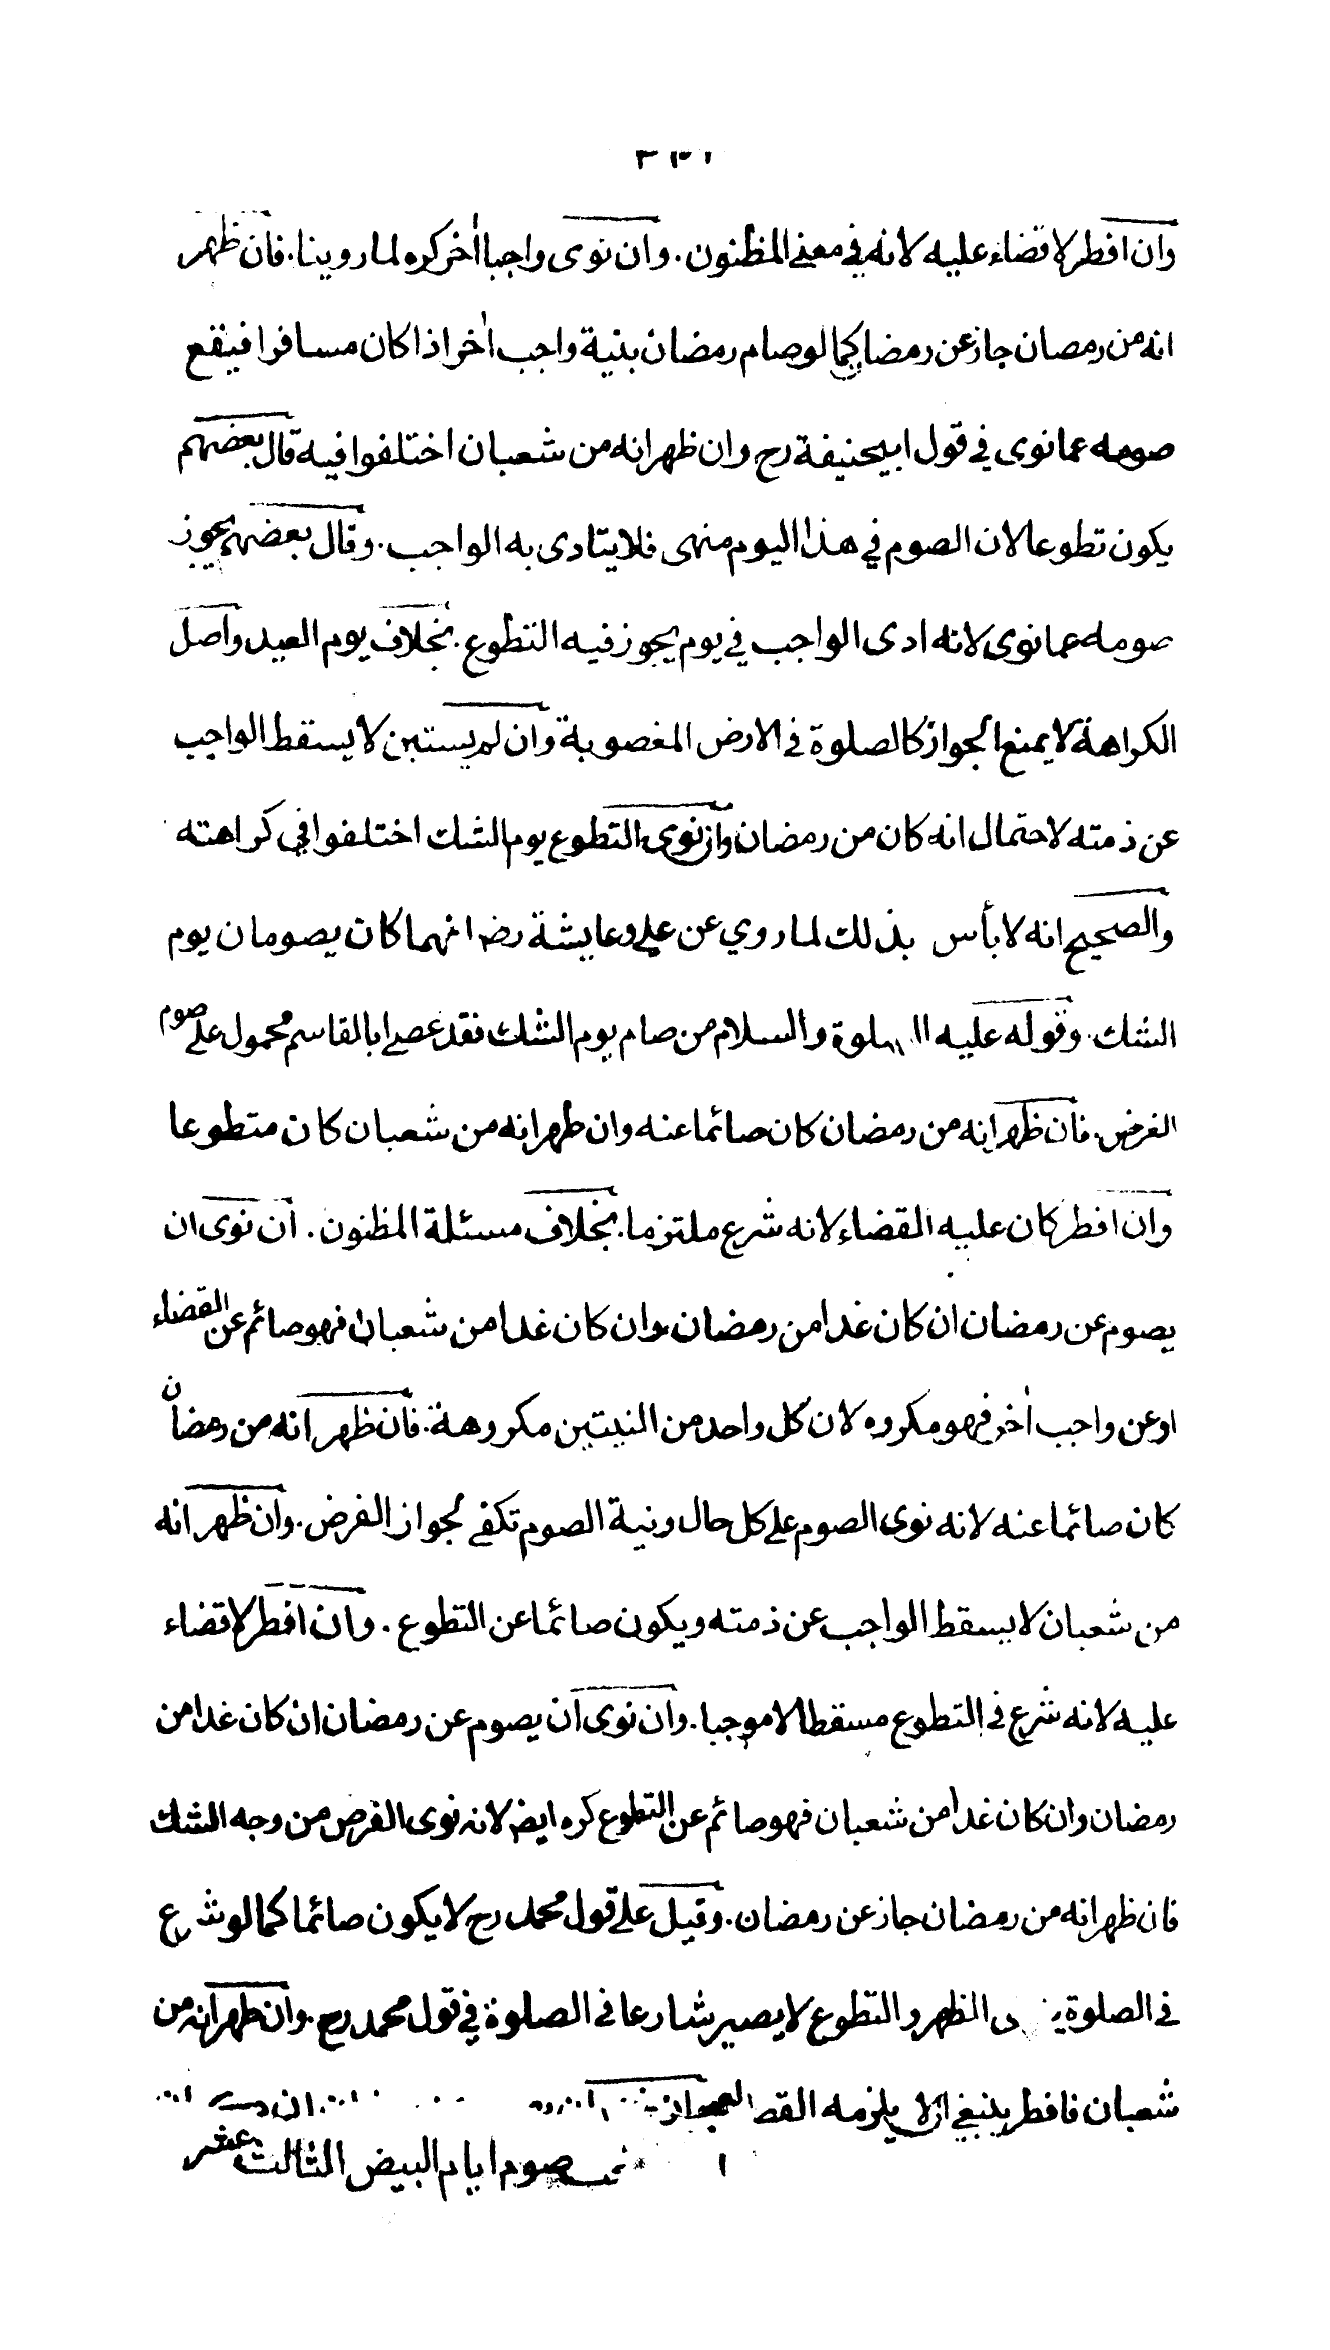 ١٣٣
وان افطر لا قضاء عليه لانه في معنى المظنون. وان نوى واجبا اٰخر كره لما روينا. فان ظهر
انه من رمضان جاز عن رمضا كما لو صام رمضان بنية واجب اٰخر اذا كان مسافرا فيقع
صومه عما نوى في قول ابيحنيفة رح وان ظهر انه من شعبان اختلفوا فيه قال بعضهم
يكون تطوعا لان الصوم في هذا اليوم منهى فلا يتادى به الواجب. وقال بعضهم يجوز
صومه عما نوى لانه ادى الواجب في يوم يجوز فيه التطوع. بخلاف يوم العيد واصل
الكراهة لا يمنع الجواز كالصلوة فى الارض المغصوبة وان لم يستبن لا يسقط الواجب
عن ذمته لاحتمال انه كان من رمضان وان نوى التطوع يوم الشك اختلفوا في كراهته
والصحيح انه لا بأس بذلك لما روي عن علي وعايشة رضـ انهما كان يصومان يوم
الشك. وقوله عليه الصلوة والسلام من صام يوم الشك فقد عصى ابا القاسم محمول على صوم
الفرض. فان ظهر انه من رمضان كان صائما عنه وان ظهر انه من شعبان كان متطوعا
وان افطر كان عليه القضاء لانه شرع ملتزما. بخلاف مسئلة المظنون. ان نوى ان
يصوم عن رمضان ان كان غدا من رمضان وان كان غدا من شعبان فهو صائم عن القضاء
او عن واجب اٰخر فهو مكروه لان كل واحد من النيتين مكروهة. فان ظهر انه من رمضان
كان صائما عنه لانه نوى الصوم على كل حال ونية الصوم تكفى لجواز الفرض. وان ظهر انه
من شعبان لا يسقط الواجب عن ذمته ويكون صائما عن التطوع. وان افطر لا قضاء
عليه لانه شرع فى التطوع مسقطا لا موجبا. وان نوى ان يصوم عن رمضان ان كان غدا من
رمضان وان كان غدا من شعبان فهو صائم عن التطوع كره ايضـ لانه نوى الفرض من وجه الشك
فان ظهر انه من رمضان جاز عن رمضان. وقيل على قول محمد رح لا يكون صائما كما لو شرع
فى الصلوة الظهر والتطوع لا يصير شارعا فى الصلوة في قول محمد رح. وان ظهر انه من
شعبان فافطر ينبغي ان لا يلزمه
صوم ايام البيض الثالث عشر